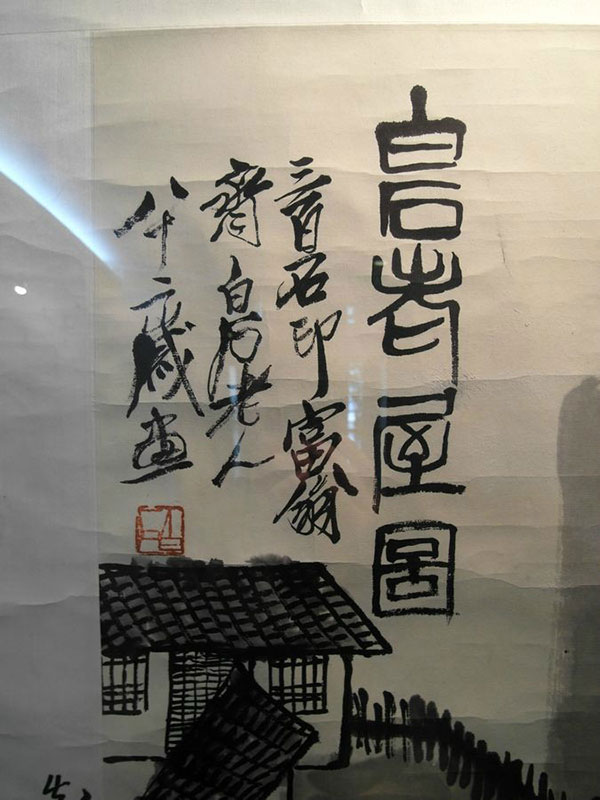 白石老屋圖
三百石印富翁
齊白石老人
八十二歲畫